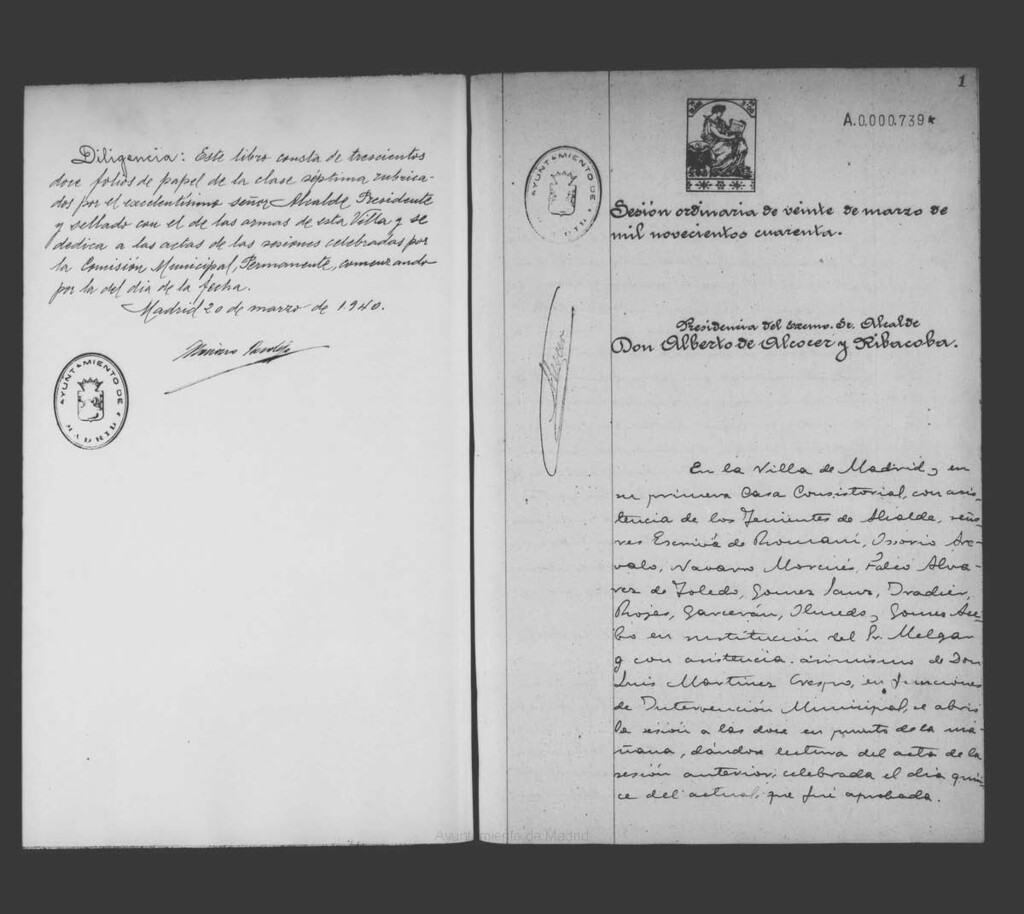 Diligencia: Este libro consta de trescientos
doce folios de papel de la clase séptima rubrica-
dos por el excelentísimo señor Alcalde Presidente
y sellado con el de las armas de esta Villa y se
dedica a las actas de las sesiones celebradas por
la Comisión Municipal, Permanente, comenzando
por la del dia de la fecha.
Madrid 20 de marzo de 1.940.
Mariano
AYUNTAMIENTO DE
MADRID
1
A.0.000.739*
AYUNTAMIENTO DE
Sesión ordinaria de veinte de marzo de
mil novecientos cuarenta.
Presidencia del Excmo. Sr. Alcalde
Don Alberto de Alcocer y Ribacoba.
En la Villa de Madrid, en
su primera Casa Consistorial, con asis-
tencia de los Tenientes de Alcalde, seño-
res Escrivá de Romaní, Ossorio Aré-
valo, Navarro Morenés, Falcó Alva-
rez de Toledo, Gomez Sanz, Dradier,
Rojas, Garcerán, Olmedo, y Gomez Ace-
bo en sustitución del Sr. Melgar
y con asistencia asimismo de Don
Luis Martínez Crespo, en funciones
de Intervención Municipal, se abrió
la sesión a las doce en punto de la ma-
ñana, dándose lectura del acta de la
sesión anterior, celebrada el dia quin-
ce del actual, que fué aprobada.
Ayuntamiento de Madrid